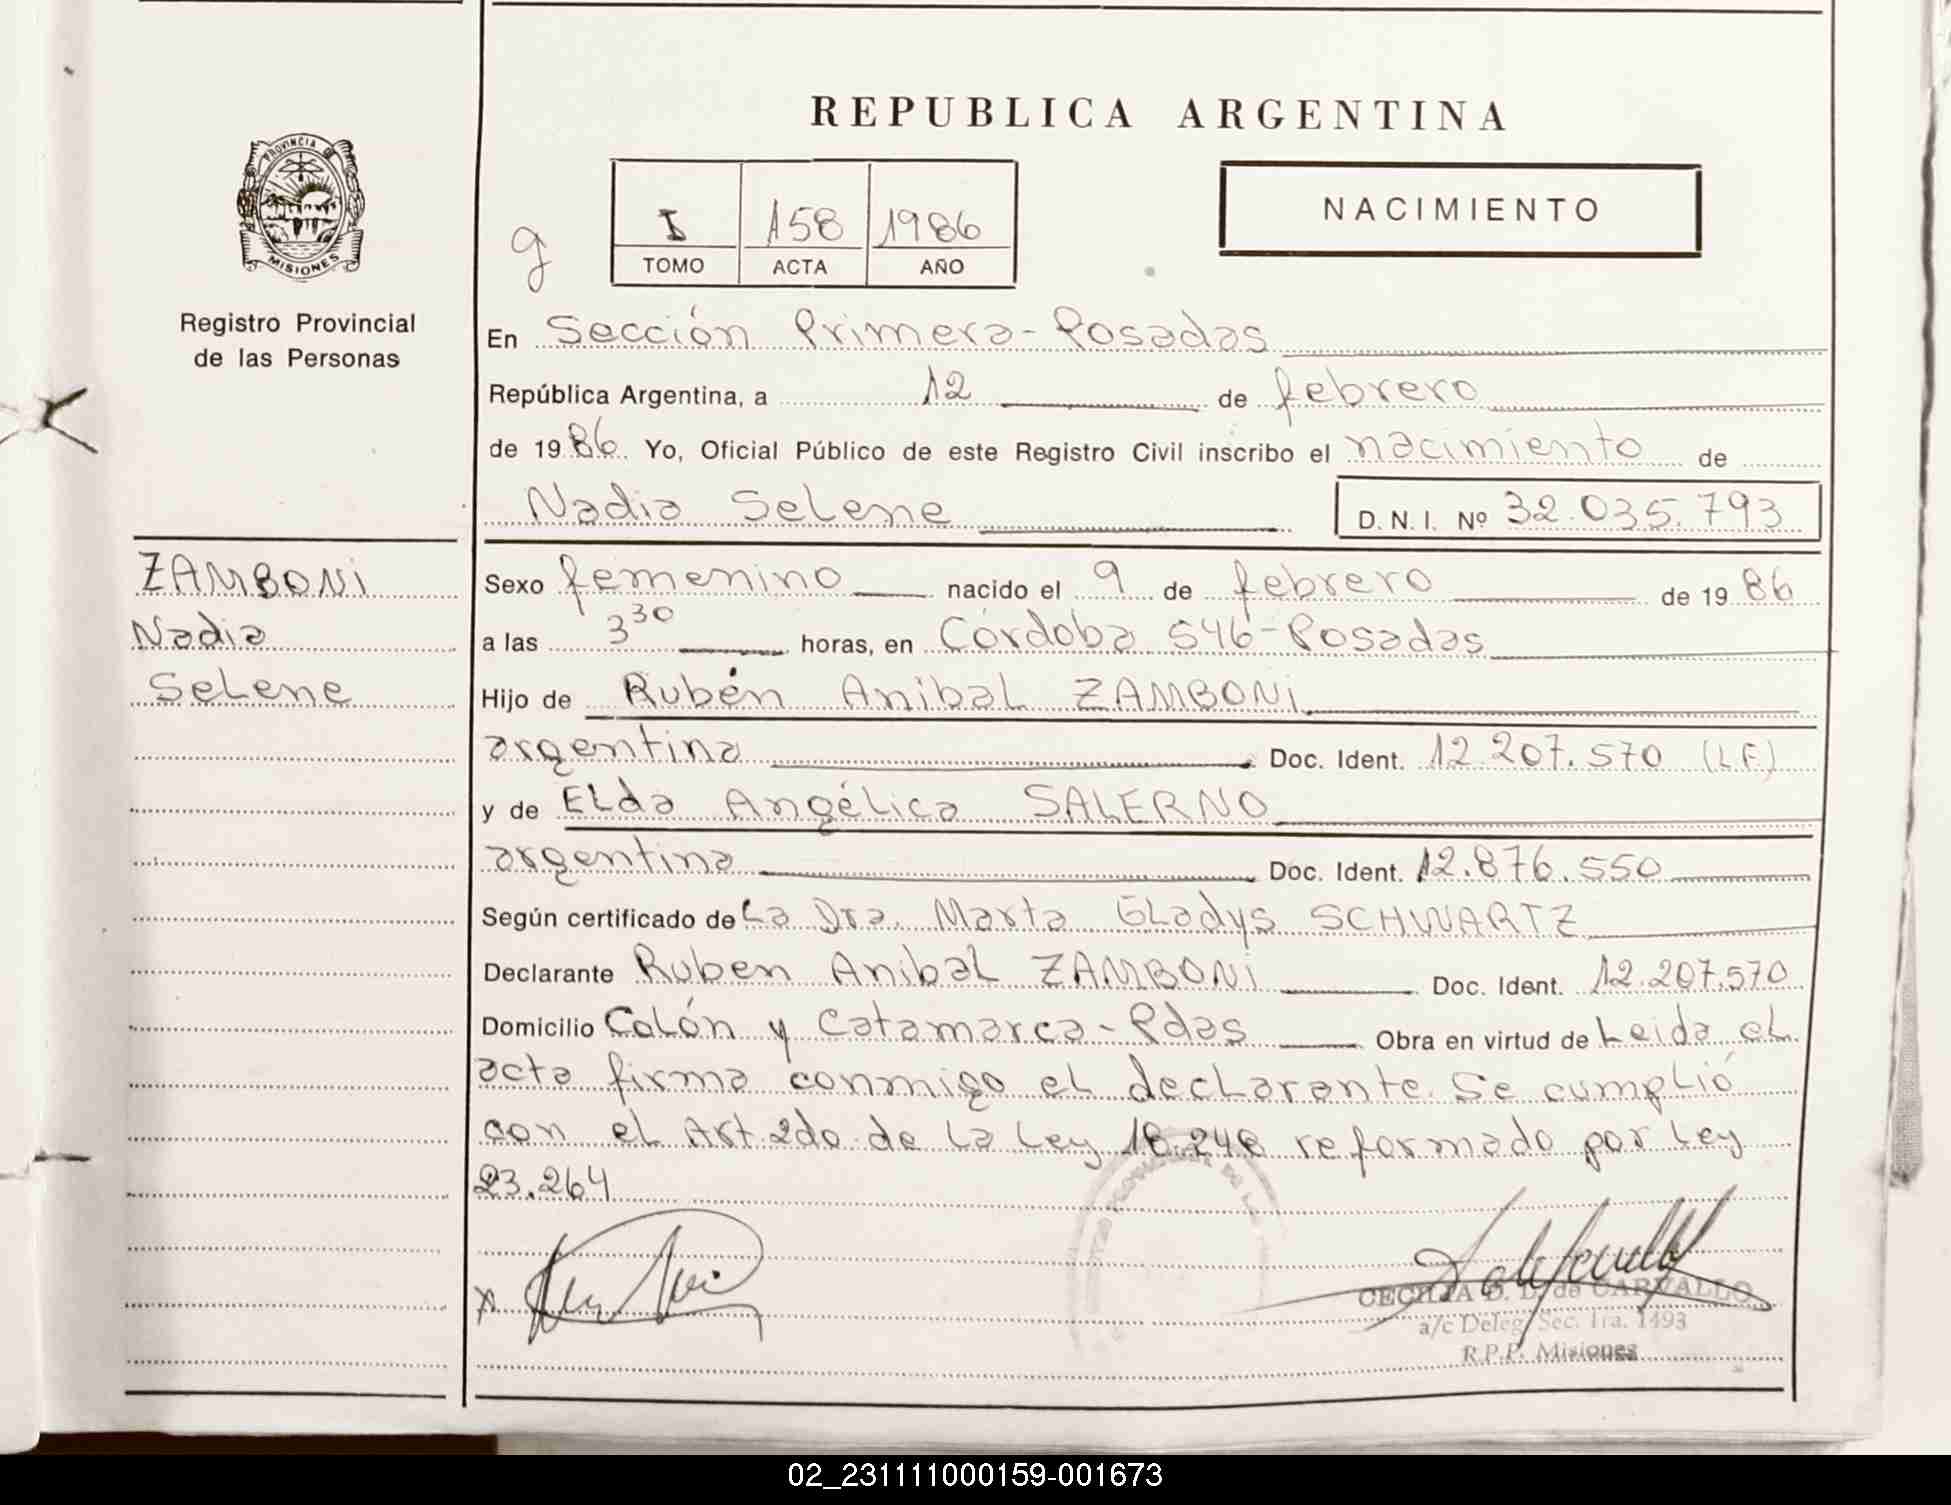 REPUBLICA ARGENTINA
PROVINCIA DE
MISIONES
Registro Provincial
de las Personas
g
I 158 1986
TOMO ACTA AÑO
NACIMIENTO
En Sección Primera-Posadas
República Argentina, a 12 de febrero
de 1986 Yo, Oficial Público de este Registro Civil inscribo el nacimiento de
Nadia Selene D.N.I. Nº 32.035.793
ZAMBONI
Nadia
Selene
Sexo femenino nacido el 9 de febrero de 1986
a las 3 30 horas, en Córdoba 546-Posadas
Hijo de Rubén Anibal ZAMBONI
argentina Doc. Ident. 12.207.570 (LE)
y de Elda Angélica SALERNO
argentina Doc. Ident. 12.876.550
Según certificado de La Dra. Marta Gladys SCHWARTZ
Declarante Ruben Anibal ZAMBONI Doc. Ident. 12.207.570
Domicilio Colón y Catamarca-Pdas Obra en virtud de Leida el
acta firma conmigo el declarante. Se cumplió
con el Art. 2do de la Ley 18.248 reformado por Ley
23.264
CECILIA D. L. de CARVALLO
a/c Deleg. Sec. 1ra. 1493
R.P.P. Misiones
02_231111000159-001673